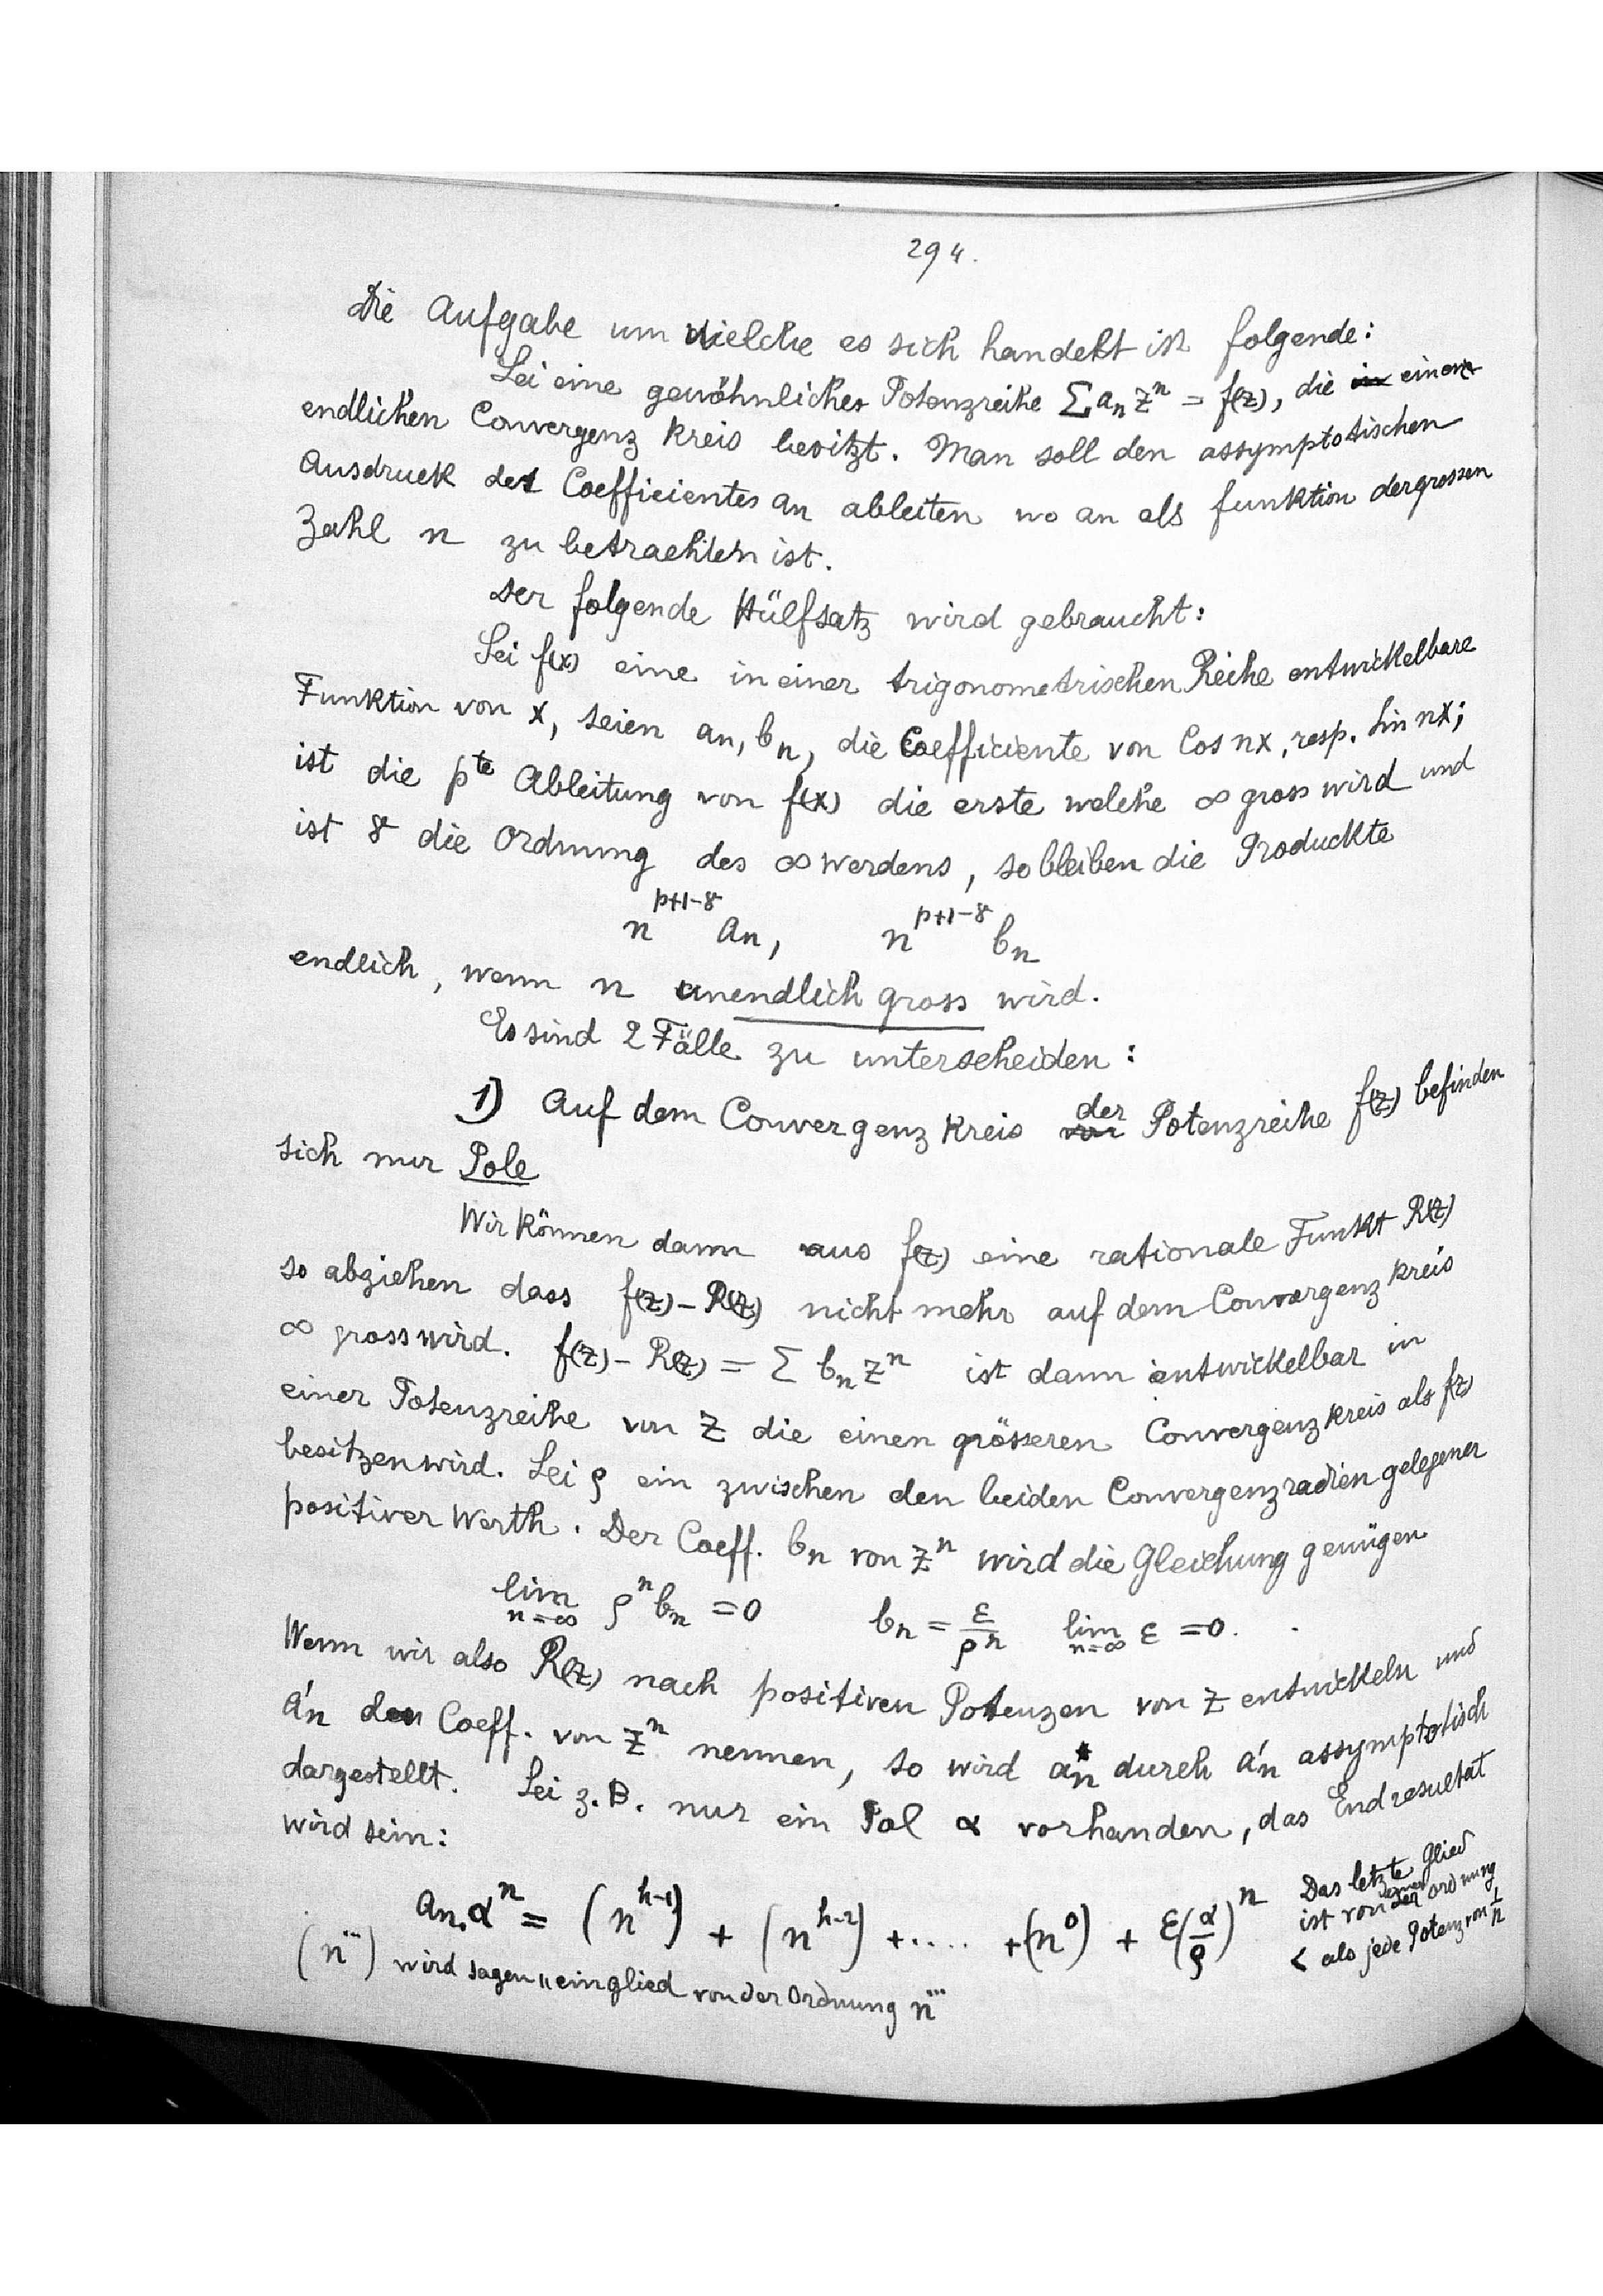 294.
Die Aufgabe um welche es sich handelt ist folgende:
Sei eine gewöhnliche Potenzreihe Σ aₙ zⁿ = f(z), die einen
endlichen Convergenz kreis besitzt. Man soll den assymptotischen
Ausdruck des Coefficientes an ableiten wo an als funktion der grossen
Zahl n zu betrachten ist.
Der folgende Hülfsatz wird gebraucht:
Sei f(x) eine in einer trigonometrischen Reihe entwickelbare
Funktion von x, seien an, bₙ, die Coefficiente von Cos nx, resp. Sin nx;
ist die pte Ableitung von f(x) die erste welche ∞ gross wird und
ist γ die Ordnung des ∞ werdens, so bleiben die Produckte
n^{p+1-γ} an, n^{p+1-γ} bₙ
endlich, wenn n unendlich gross wird.
Es sind 2 Fälle zu unterscheiden:
1) Auf dem Convergenz kreis der Potenzreihe f(z) befinden
sich nur Pole
Wir können dann aus f(z) eine rationale Funkt R(z)
so abziehen dass f(z) – R(z) nicht mehr auf dem Convergenz kreis
∞ gross wird. f(z) – R(z) = Σ bₙ zⁿ ist dann entwickelbar in
einer Potenzreihe von z die einen grösseren Convergenz kreis als f(z)
besitzen wird. Sei ρ ein zwischen den beiden Convergenz radien gelegener
positiver Werth. Der Coeff. bₙ von zⁿ wird die Gleichung genügen
lim n=∞ ρⁿ bₙ = 0 bₙ = ε/ρⁿ lim n=∞ ε = 0.
Wenn wir also R(z) nach positiven Potenzen von z entwickeln und
a'n den Coeff. von zⁿ nennen, so wird an durch a'n assymptotisch
dargestellt. Sei z.B. nur ein Pol α vorhanden, das Endresultat
wird sein:
an.αⁿ = (n^{h-1}) + (n^{h-2}) + .... + (n⁰) + ε(α/ρ)ⁿ Das letzte Glied
ist von der Ordnung
< als jede Potenz von 1/n
(n^{...}) wird sagen „ein glied von der Ordnung n^{...}